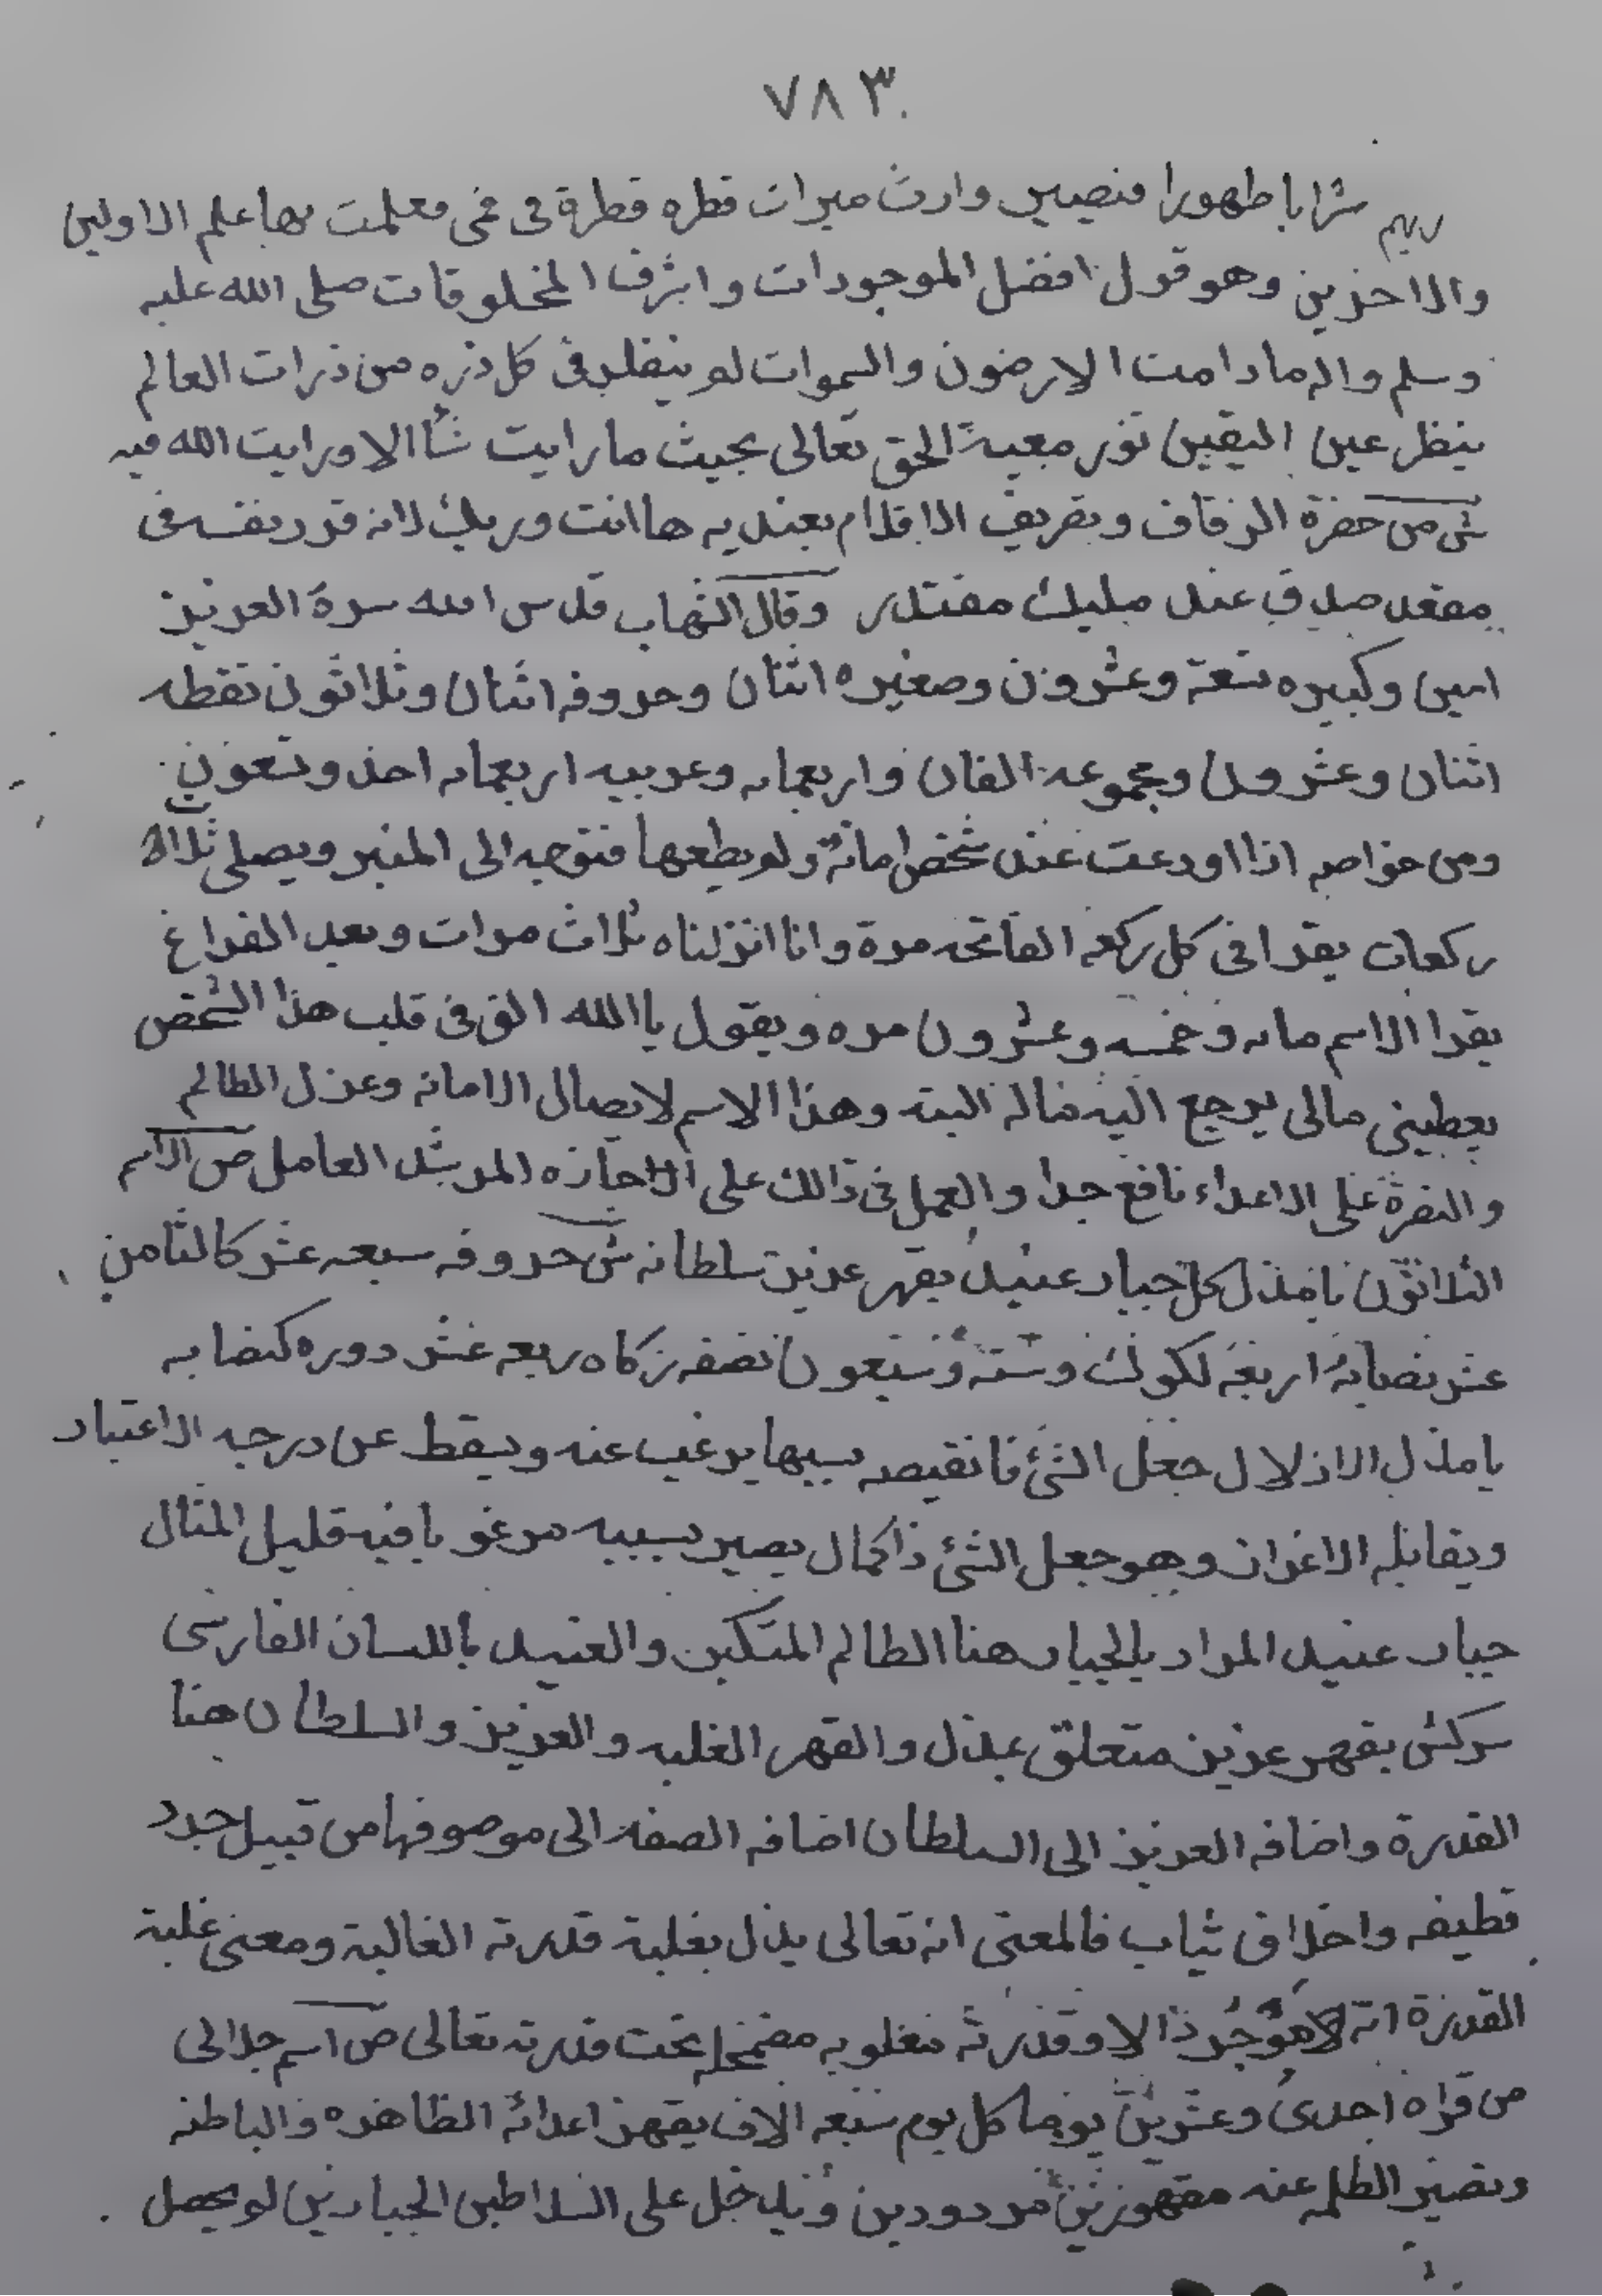 ٧٨٣
ربهم شرابا طهورا فيصير وارث ميراث قطره قطرة فى فمى فعلمت بها علم الاولين
والاخرين وهو قول افضل الموجودات واشرف المخلوقات صلى الله عليه
وسلم واله مادامت الارضون والسموات لم ينظر فى كل ذره من ذرات العالم
ينظر عين اليقين نور معية الحق تعالى بحيث ما رايت شأ الا ورايت الله فيه
ش ص حضرة الزفاف وبقريف الاقدام بعبديه ها انت وربك لانه قور نفسه فى
مقعد صدق عند مليك مقتدر وقال الشهاب قدس الله سره العزيز
امين وكبيره تسعة وعشرون وصغيره اثنان وحروفه اثنان وثلاثون نقطه
اثنان وعشرون ومجموعه الفان واربعمايه وعربيه اربعمايه احد وتسعون
ومن خواصه اذا اودعت عند شخص امانة ولم يطعها فتوجه الى المنبر ويصلى ثلاث
ركعات يقرا فى كل ركعه الفاتحه مرة وانا انزلناه ثلاث مرات وبعد الفراغ
يقرا الاسم مايه وخمسه وعشرون مره ويقول يا الله الق فى قلب هذا الشخص
يعطينى مالى يرجع اليه ماله البته وهذا الاسم لايصال الامانه وعزل الظالم
والنصرة على الاعداء نافع جدا والعمل فى ذالك على الاجازه المرشد العامل ص الاسم
الثلاثون يا مذل كل جبار عنيد بقهر عزيز سلطانه ش حروفه سبعه عشر كالثامن
عشر نصابه اربعه لكوك وسته وسبعون نصفه زكاه ربعه عشر دوره كنصابه
يا مذل الاذلال جعل الشئ نا نقيصه بسببها يرغب عنه ويسقط عن درجه الاعتبار
ويقابله الاعزاز وهو جعل الشئ ذا كمال يصير بسببه مرغوبا فيه قليل المثال
جبار عنيد المراد بالجبار هنا الظالم المتكبر والعنيد باللسان الفارسى
سركش بقهر عزيز متعلق بمذل والقهر الغلبه والعزيز والسلطان هنا
القدرة واضافه العزيز الى السلطان اضافه الصفه الى موصوفها من قبيل جرد
قطيفه واخلاق ثياب فالمعنى انه تعالى يذل بغلبة قدرته الغالبة ومعنى غلبة
القدرة انه لا موجود الا وقدرته مغلوبه مضمحله تحت قدرته تعالى ص اسم جلالى
من قراه احدى وعشرين يوما كل يوم سبعه الاف يقهر اعدائه الظاهره والباطنه
وتصير الظلمه عنه مقهورين مردودين ويدخل على السلاطين الجبارين لو يحصل